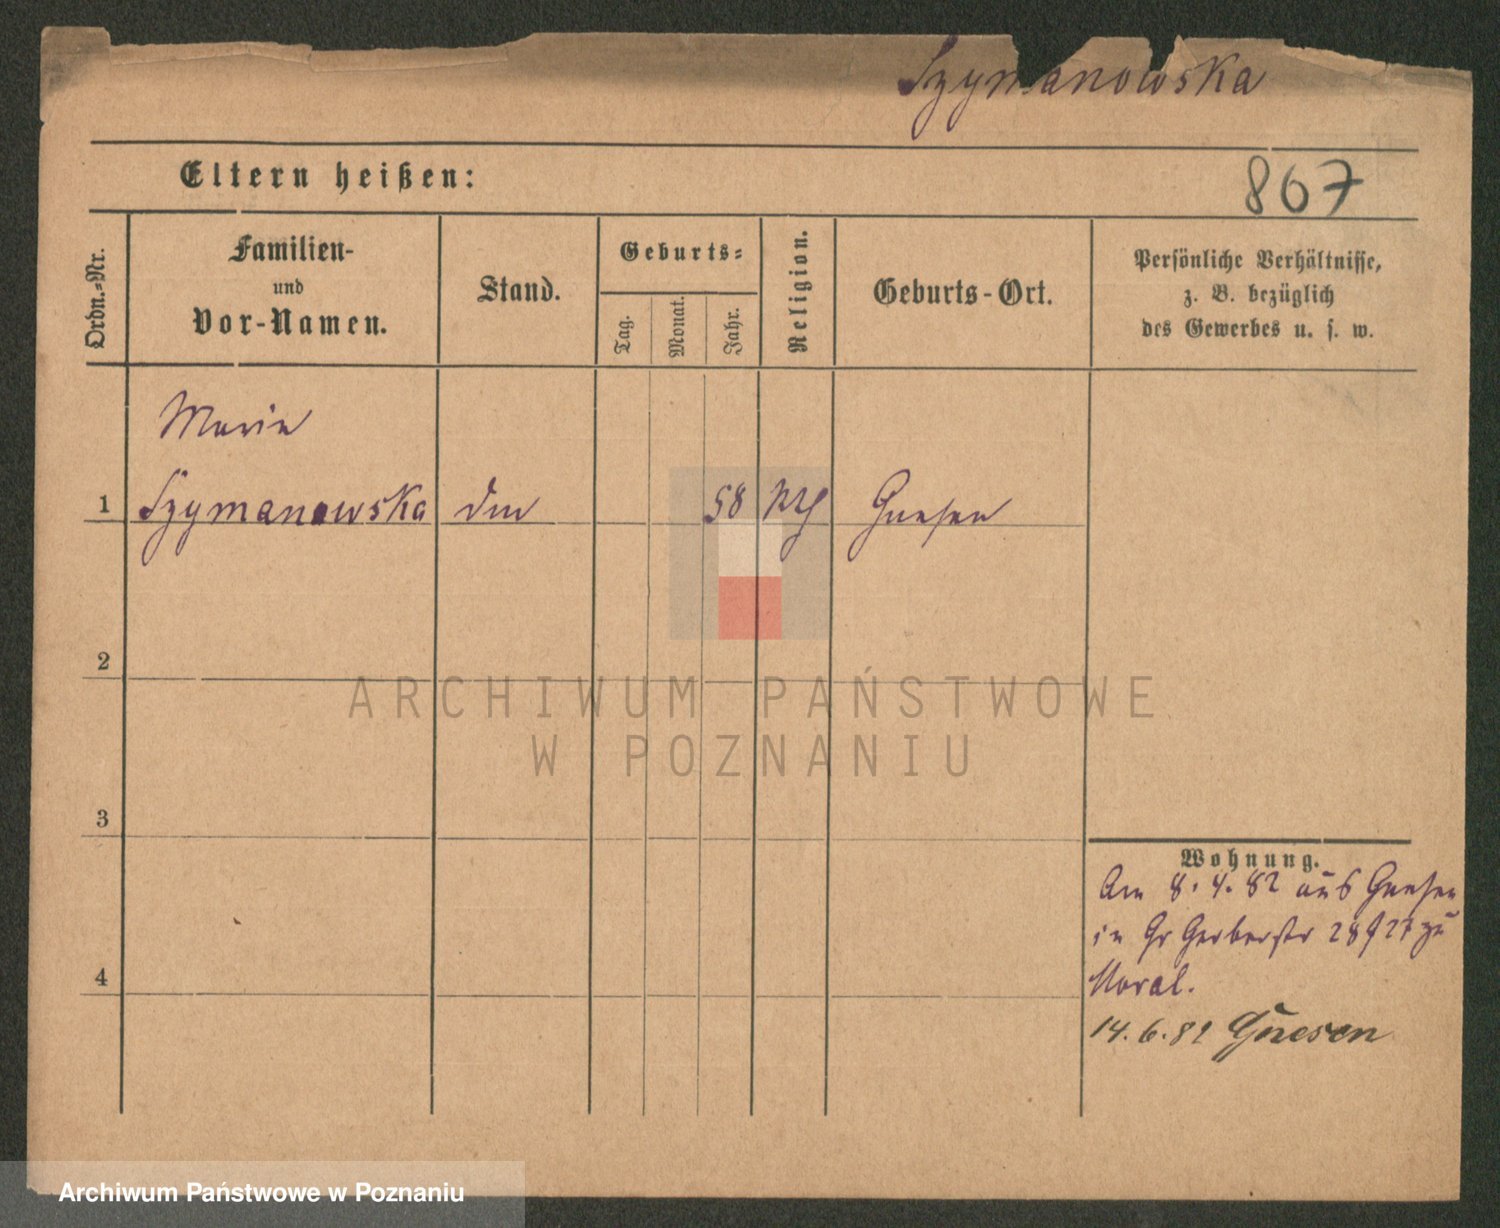 Szymanowska
Eltern heißen:
867
Ordn.-Nr.
Familien-
und
Vor-Namen.
Stand.
Geburts-
Tag.
Monat.
Jahr.
Religion.
Geburts-Ort.
Persönliche Verhältnisse,
z. B. bezüglich
des Gewerbes u. s. w.
Marie
1 Szymanowska 58 kth Gnesen
2
3
4
Wohnung.
Am 8. 4. 82 aus Gnesen
in Gr Gerberstr zu
Moral.
14. 6. 82 Gnesen
ARCHIWUM PAŃSTWOWE
W POZNANIU
Archiwum Państwowe w Poznaniu